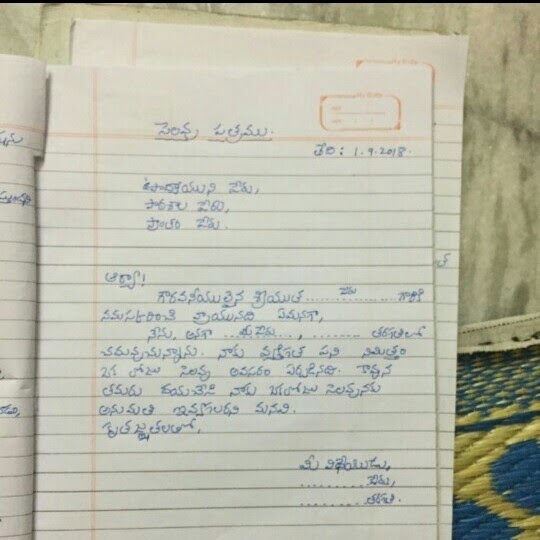 సెలవు పత్రము.
తేది: 1.9.2018.
ఉపాధ్యాయుని పేరు,
పాఠశాల పేరు,
ప్రాంతం పేరు.
ఆర్యా!
గౌరవనీయులైన శ్రీయుత ....పేరు.... గారికి
నమస్కరించి వ్రాయునది ఏమనగా,
నేను, అనగా ...మీ పేరు..., ......... తరగతిలో
చదువుచున్నాను. నాకు వ్యక్తిగత పని నిమిత్తం
ఒక రోజు సెలవు అవసరం ఏర్పడినది. కావున
తమరు దయచేసి నాకు ఒకరోజు సెలవునకు
అనుమతి ఇవ్వగలరని మనవి.
కృతజ్ఞతలతో,
మీ విధేయుడు,
......... పేరు,
......... తరగతి.